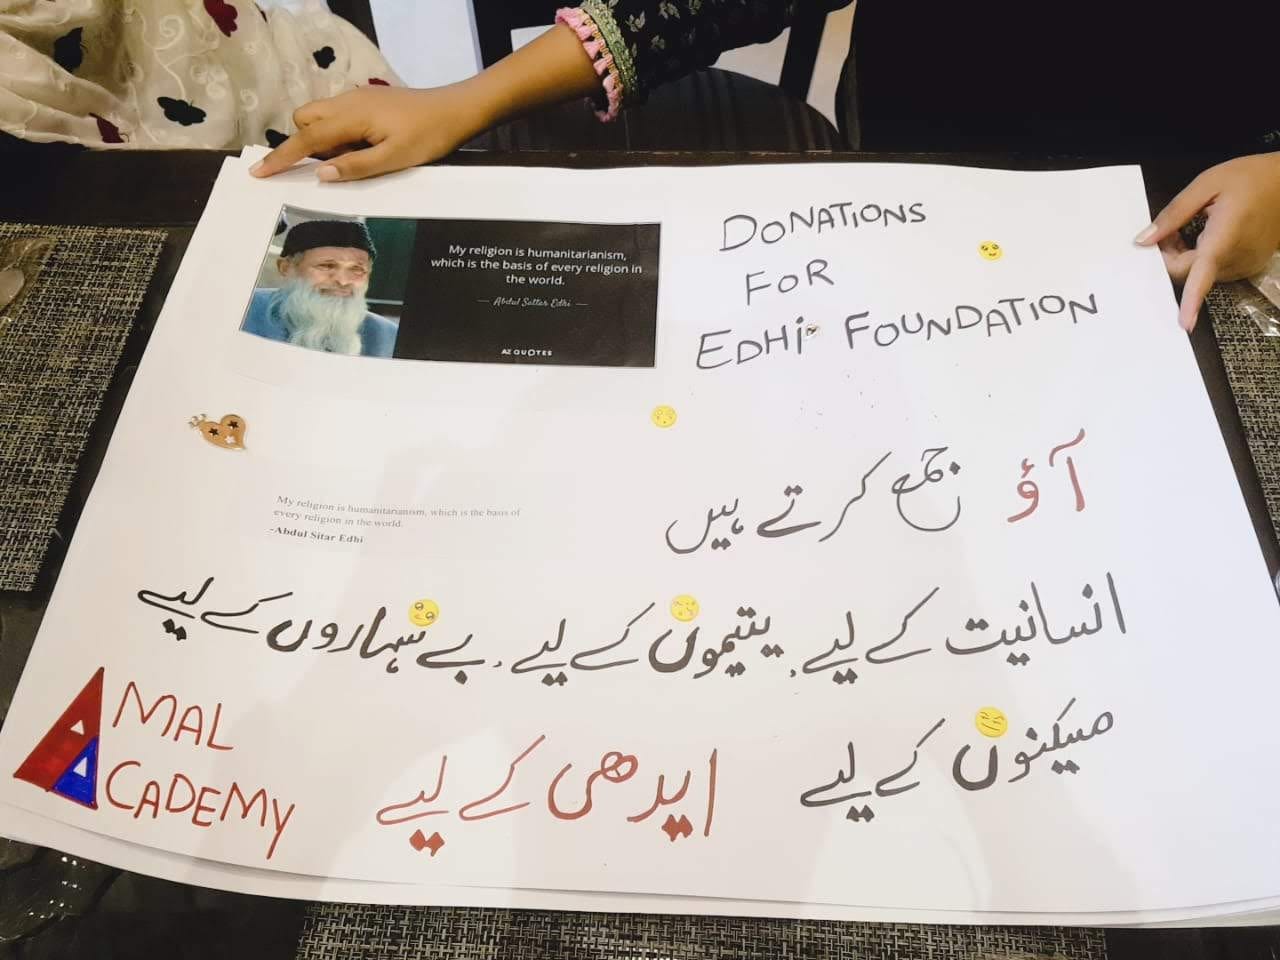 My religion is humanitarianism,
which is the basis of every religion in
the world.
— Abdul Sattar Edhi —
AZ QUOTES
DONATIONS
FOR
EDHI FOUNDATION
آؤ جمع کرتے ہیں
My religion is humanitarianism, which is the basis of
every religion in the world.
-Abdul Sitar Edhi
انسانیت کے لیے، یتیموں کے لیے، بے سہاروں کے لیے
مسکینوں کے لیے ایدھی کے لیے
AMAL
ACADEMY